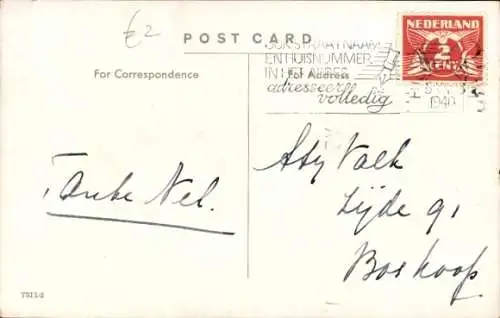 £2
POST CARD
NEDERLAND
2
CENT
OOK STRAATNAAM
EN HUISNUMMER
IN HET ADRES
adresseer
volledig
1940
For Correspondence
For Address
Tante Nel.
Aty Valk
Zijde 91
Boskoop